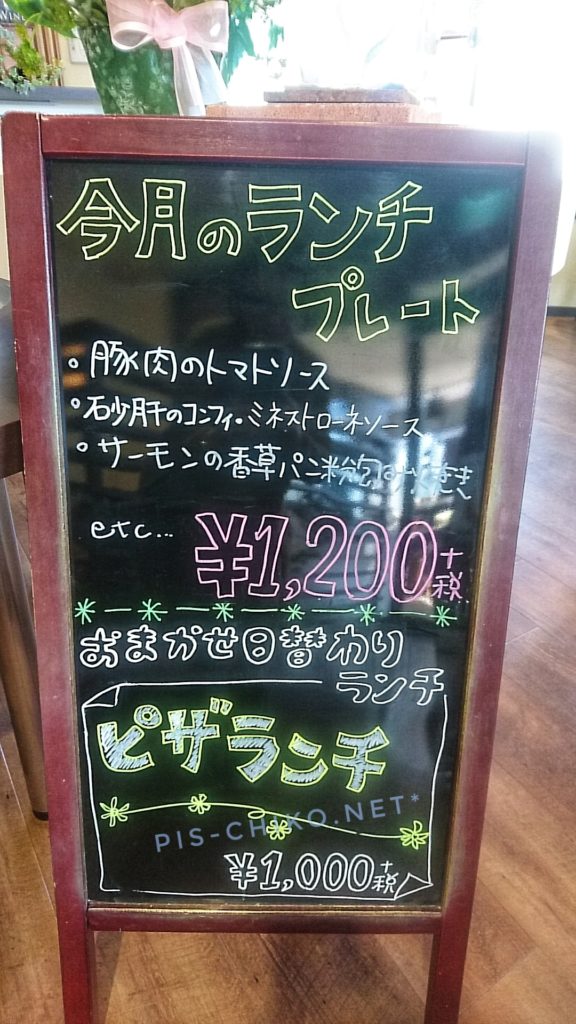 今月のランチ
プレート
・豚肉のトマトソース
・砂肝のコンフィ・ミネストローネソース
・サーモンの香草パン粉包み焼き
etc...
¥1,200+税
おまかせ日替わり
ランチ
ピザランチ
PIS-CHIKO.NET*
¥1,000+税